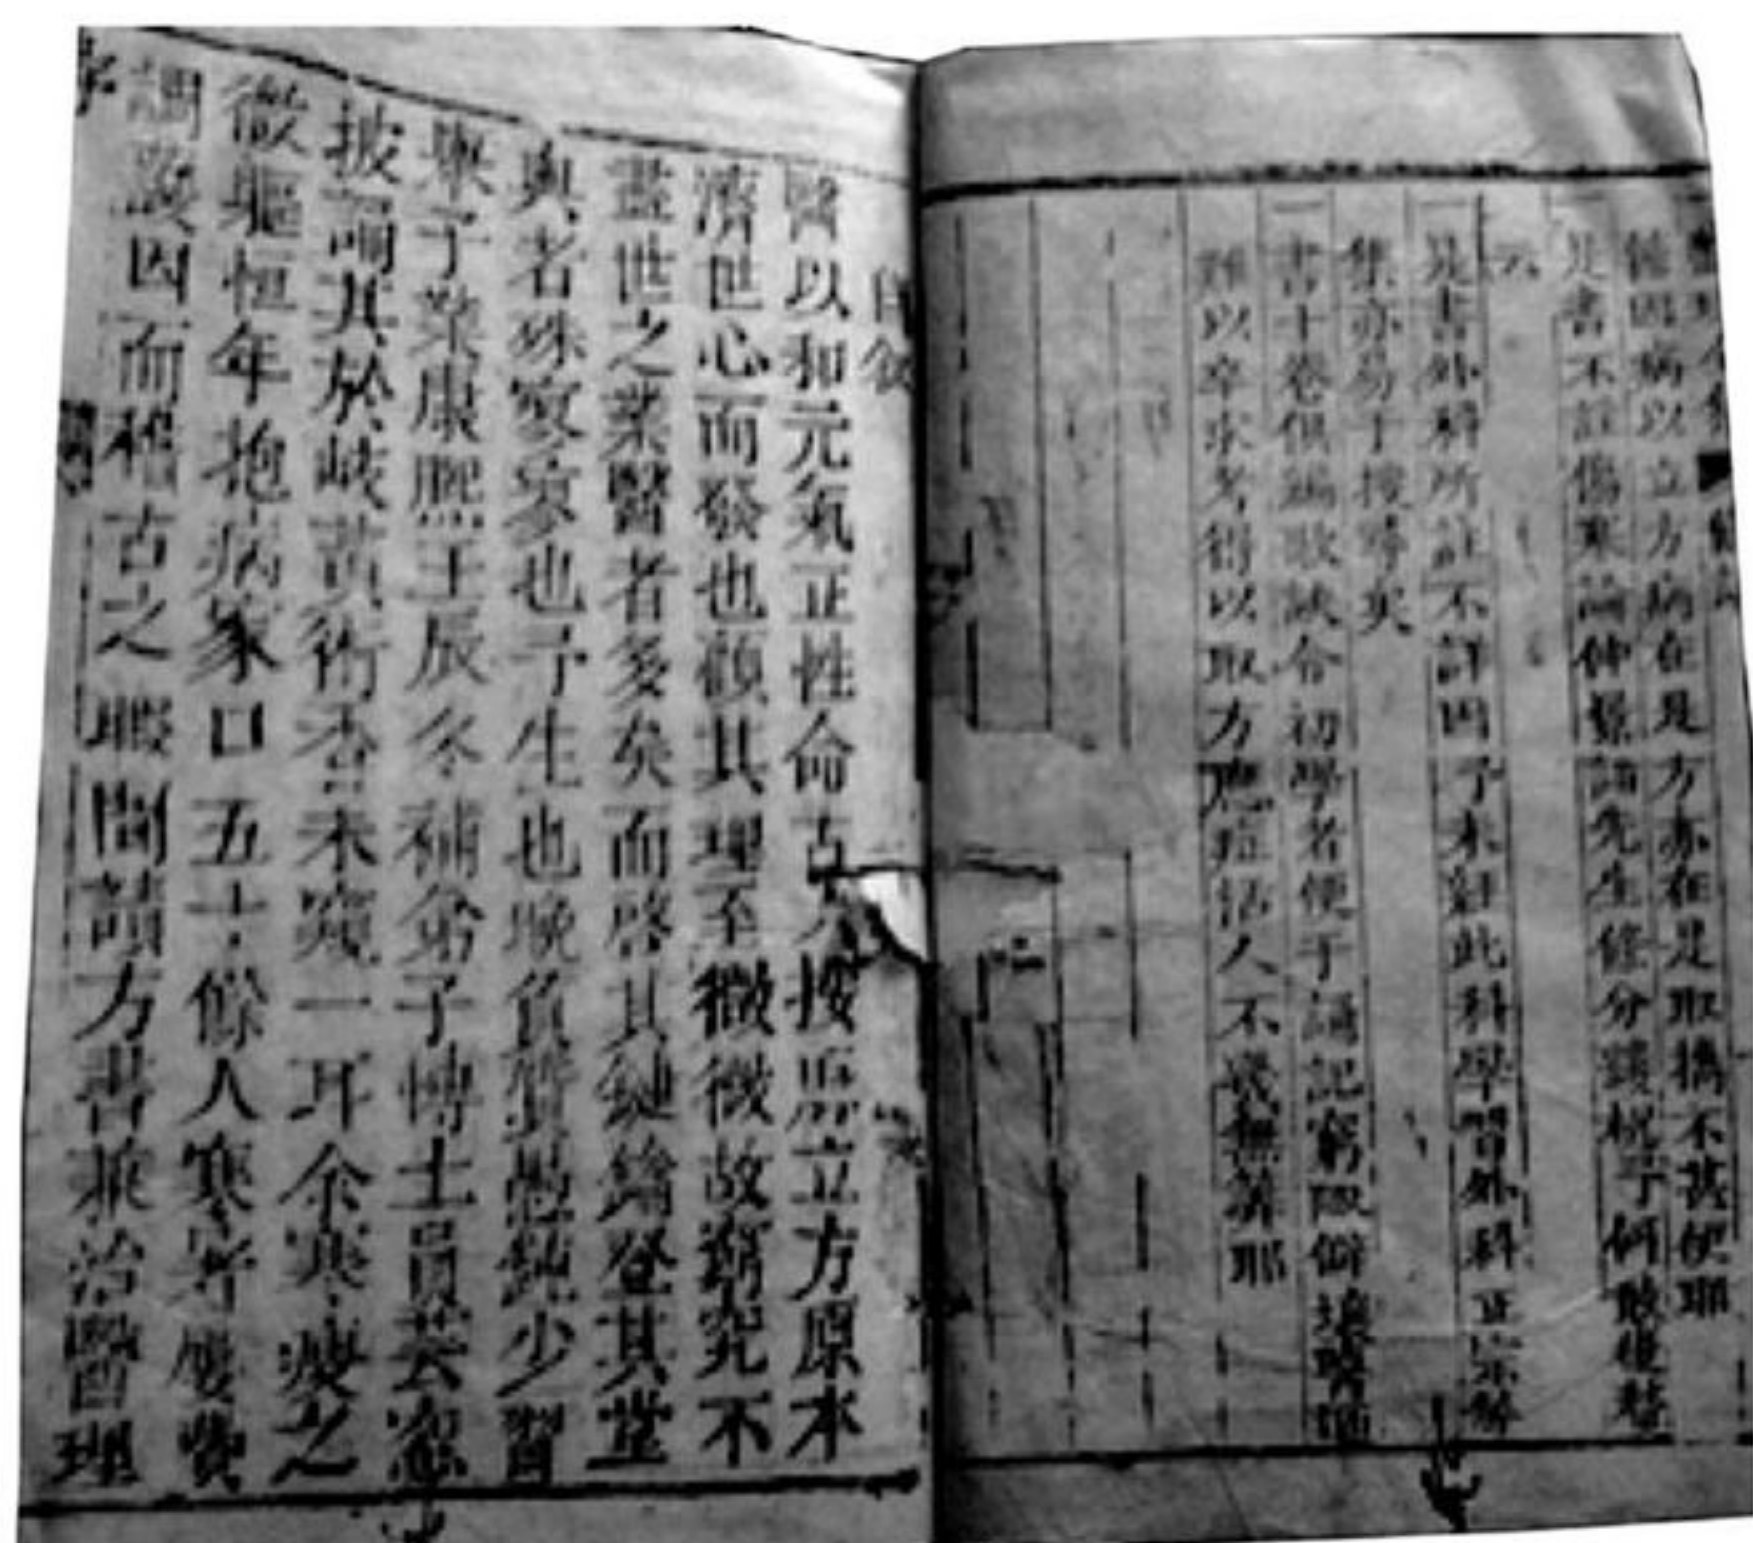 因病以立方病在是方亦在是取携不甚便耶
一是書不註傷寒論仲景諸先生條分
云
一是書外科所註不詳因予未經此科學習外科正宗解
集亦易于搜尋矣
一書十卷俱編歌訣令初學者便于誦記窮陬僻壤
難以卒求考得以取方應症活人不幾無算耶
自叙
醫以和元氣正性命古人按症立方原本
濟世心而發也顧其理至微微故窮究不
盡世之業醫者多矣而啓其鍵鑰登其堂
與者殊寥寥也予生也晚負質愚鈍少習
舉子業康熙壬辰冬補弟子博士員芸窓
披誦其於岐黃術杳未窺一耳余寒瘦之
徵軀恒年抱病家口五十餘人寒暑屢費
調護因而稽古之暇閒讀方書兼治醫理